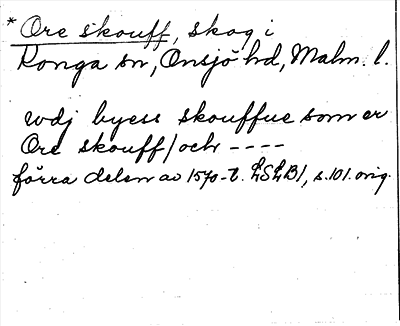 * Ore skouff, skog i
Konga sn, Onsjö hd, Malm. l.
wdj byess skouffue som er
Ore skouff/och ----
förra delen av 1570-t. LSLB1, s. 101. orig.